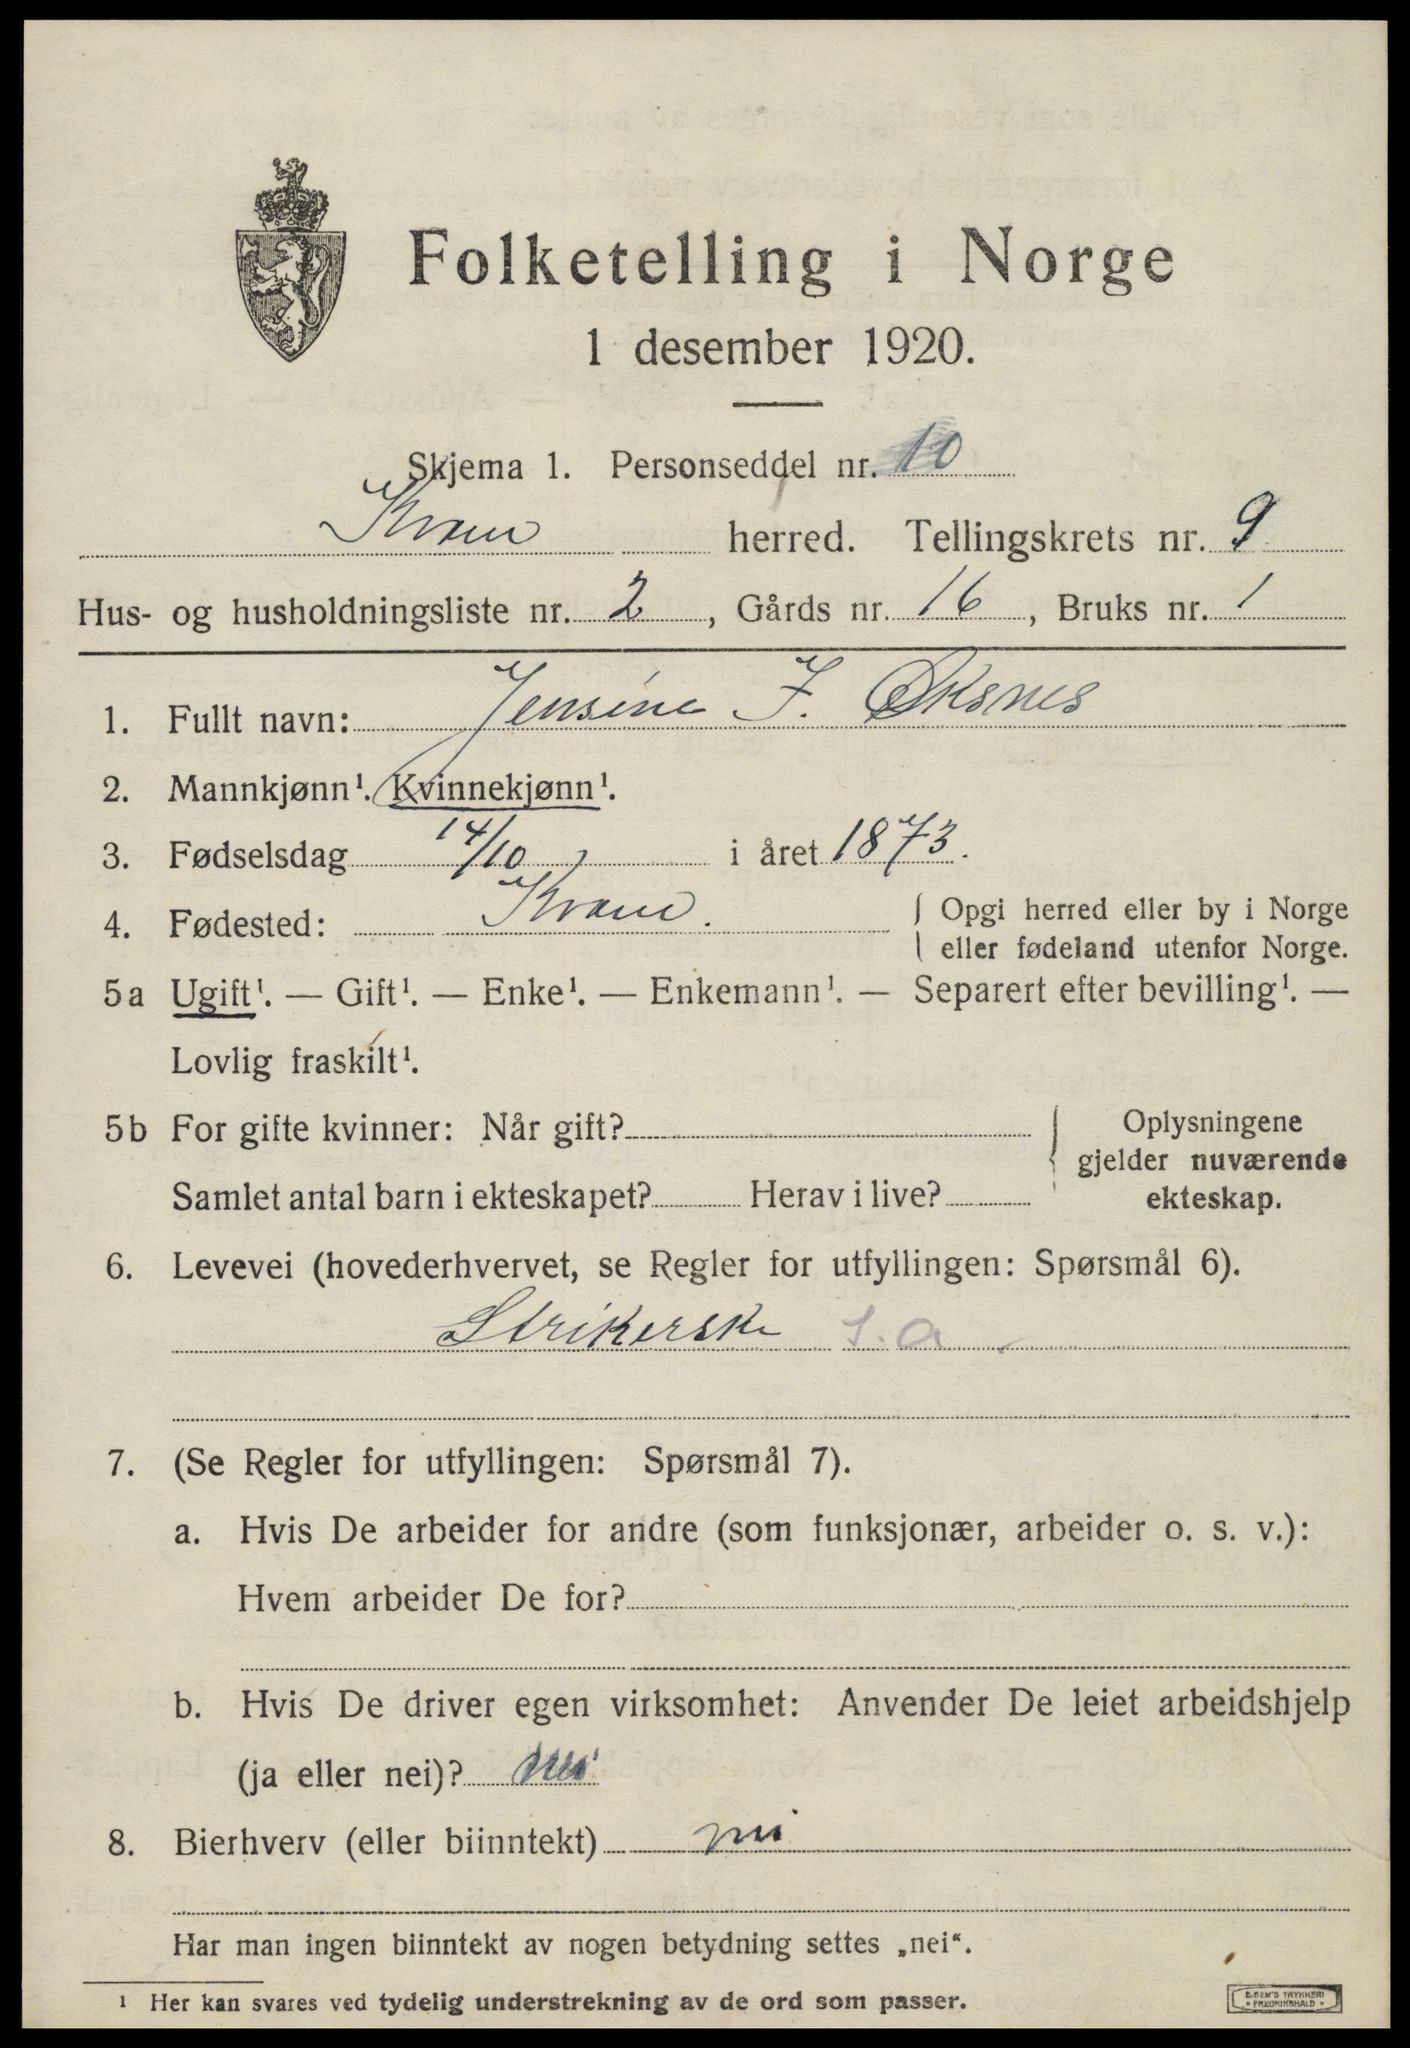 Folketelling i Norge
1 desember 1920.
Skjema 1. Personseddel nr. 10
Kvam herred. Tellingskrets nr. 9
Hus- og husholdningsliste nr. 2, Gårds nr. 16, Bruks nr. 1
1. Fullt navn: Jensine J. Øksnes
2. Mannkjønn¹. Kvinnekjønn¹.
3. Fødselsdag 14/10 i året 1873.
4. Fødested: Kvam. { Opgi herred eller by i Norge
eller fødeland utenfor Norge.
5a Ugift¹. — Gift¹. — Enke¹. — Enkemann¹. — Separert efter bevilling¹. —
Lovlig fraskilt¹.
5b For gifte kvinner: Når gift? { Oplysningene
gjelder nuværende
Samlet antal barn i ekteskapet? Herav i live? ekteskap.
6. Levevei (hovederhvervet, se Regler for utfyllingen: Spørsmål 6).
Strikerske s.a
7. (Se Regler for utfyllingen: Spørsmål 7).
a. Hvis De arbeider for andre (som funksjonær, arbeider o. s. v.):
Hvem arbeider De for?
b. Hvis De driver egen virksomhet: Anvender De leiet arbeidshjelp
(ja eller nei)? nei
8. Bierhverv (eller biinntekt) nei
Har man ingen biinntekt av nogen betydning settes „nei“.
¹ Her kan svares ved tydelig understrekning av de ord som passer.
E. SEM'S TRYKKERI
• FREDRIKSHALD •